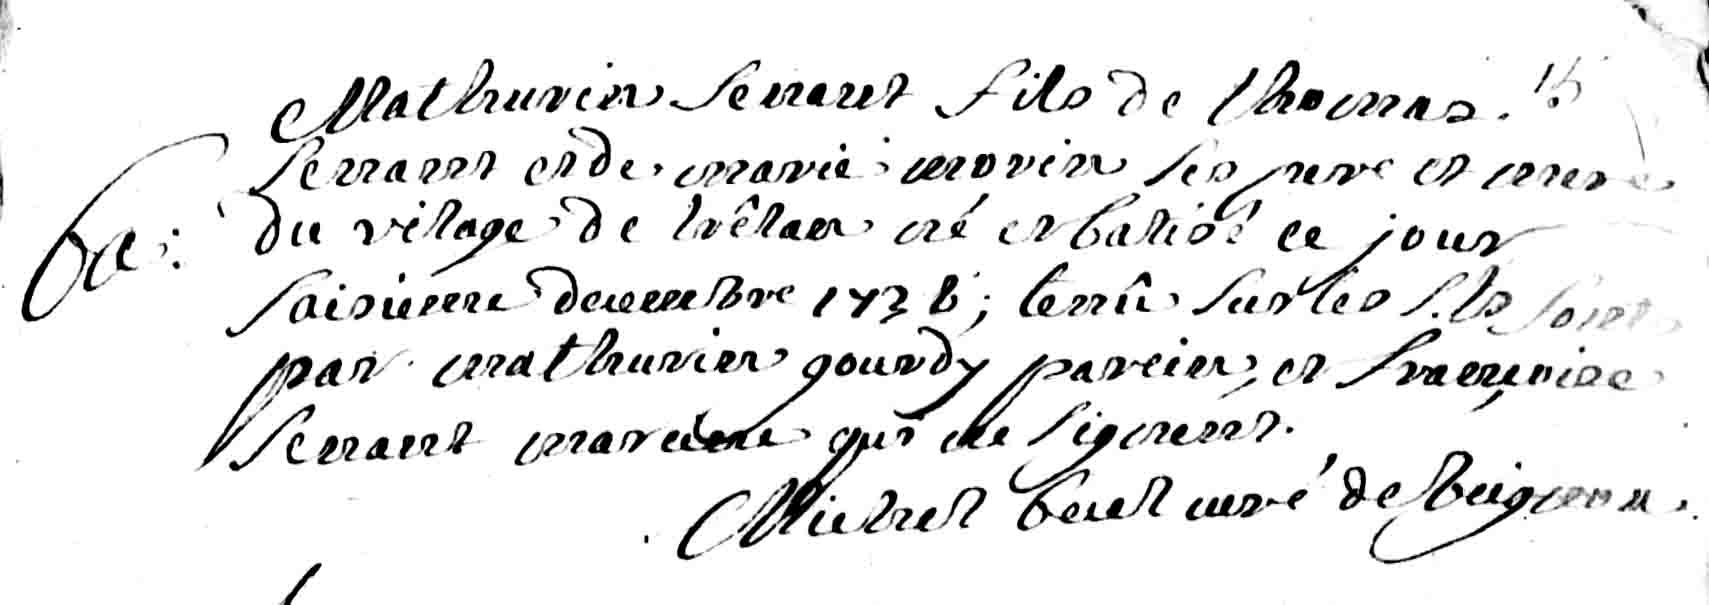 Mathurin Serrant fils de thomas.
Serrant et de marie morin ses pere et mere
Ba: du vilage de trêlan né et batisé ce jour
saisieme decembre 173 ; tenû sur les s.ts fonts
par mathurin gourdy parein, et francoise
Serrant mareine qui ne signent.
Michel curé de Beignon.